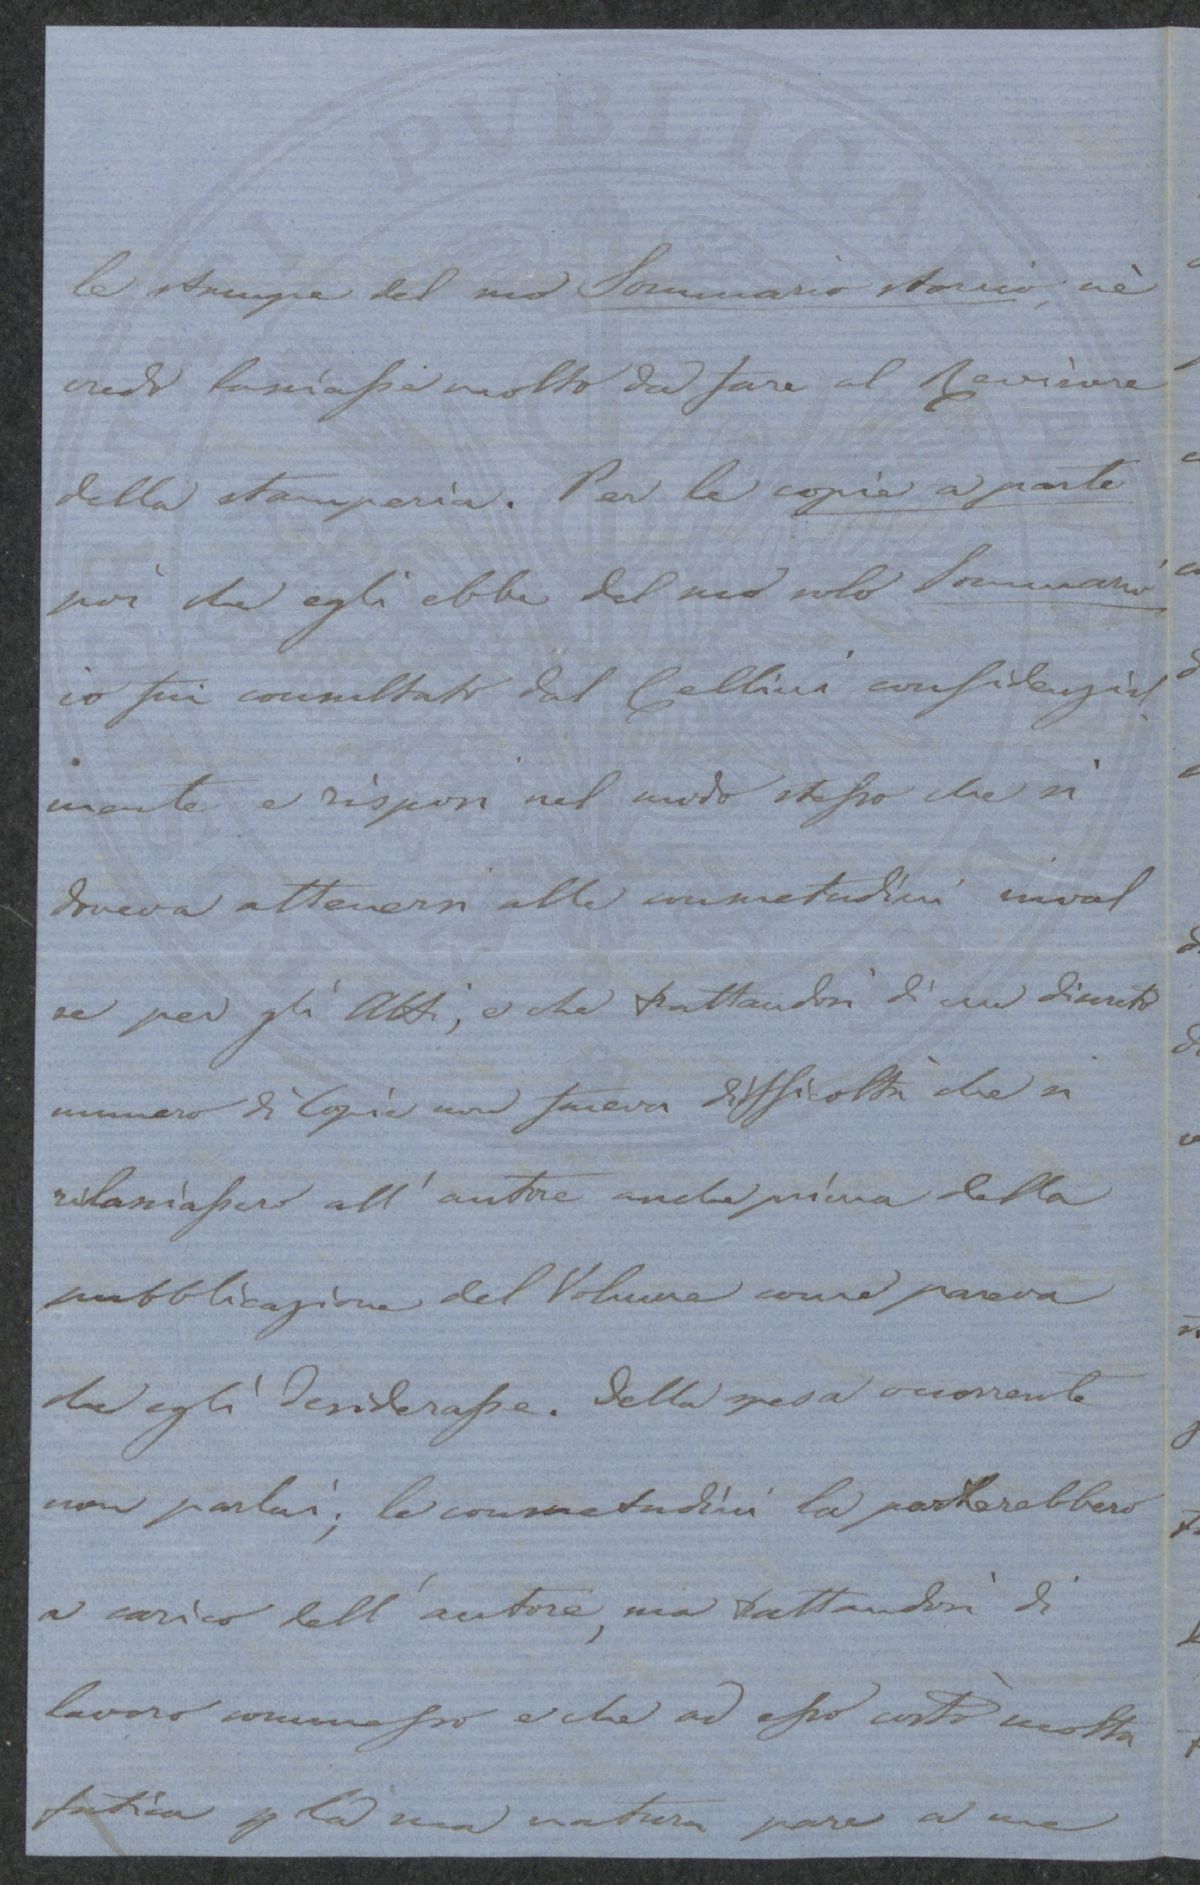 le stampe del suo Sommario storico, nè
credo lasciasse molto da fare al Revisore
della stamperia. Per le copie a parte
poi che egli ebbe del suo solo Sommario
io fui consultato dal Cellini confidenzial
mente e risposi nel modo stesso che si
doveva attenersi alle consuetudini inval
se per gli Atti, e che trattandosi di un discreto
numero di Copie non faceva difficoltà che si
rilasciassero all'autore anche prima della
pubblicazione del Volume come pareva
che egli desiderasse. Della spesa occorrente
non parlai; le consuetudini la porterebbero
a carico dell'autore, ma trattandosi di
lavoro commesso e che ad esso costò molta
fatica p la sua natura pare a me